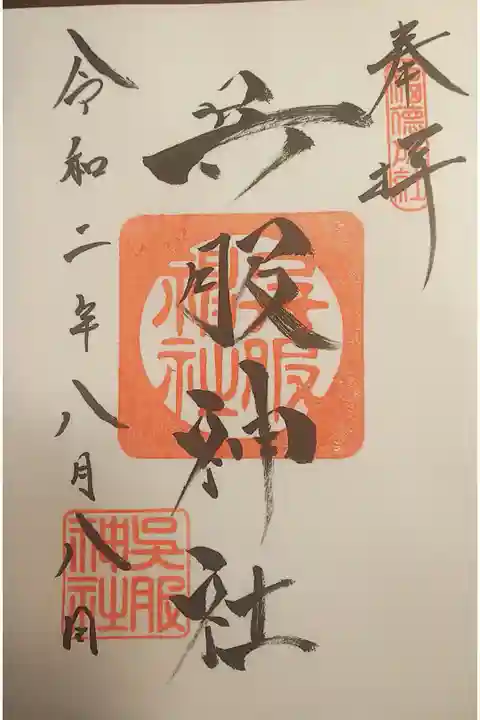 奉拝
呉服神社
呉服
神社
令和二年八月八日
吳服
神社